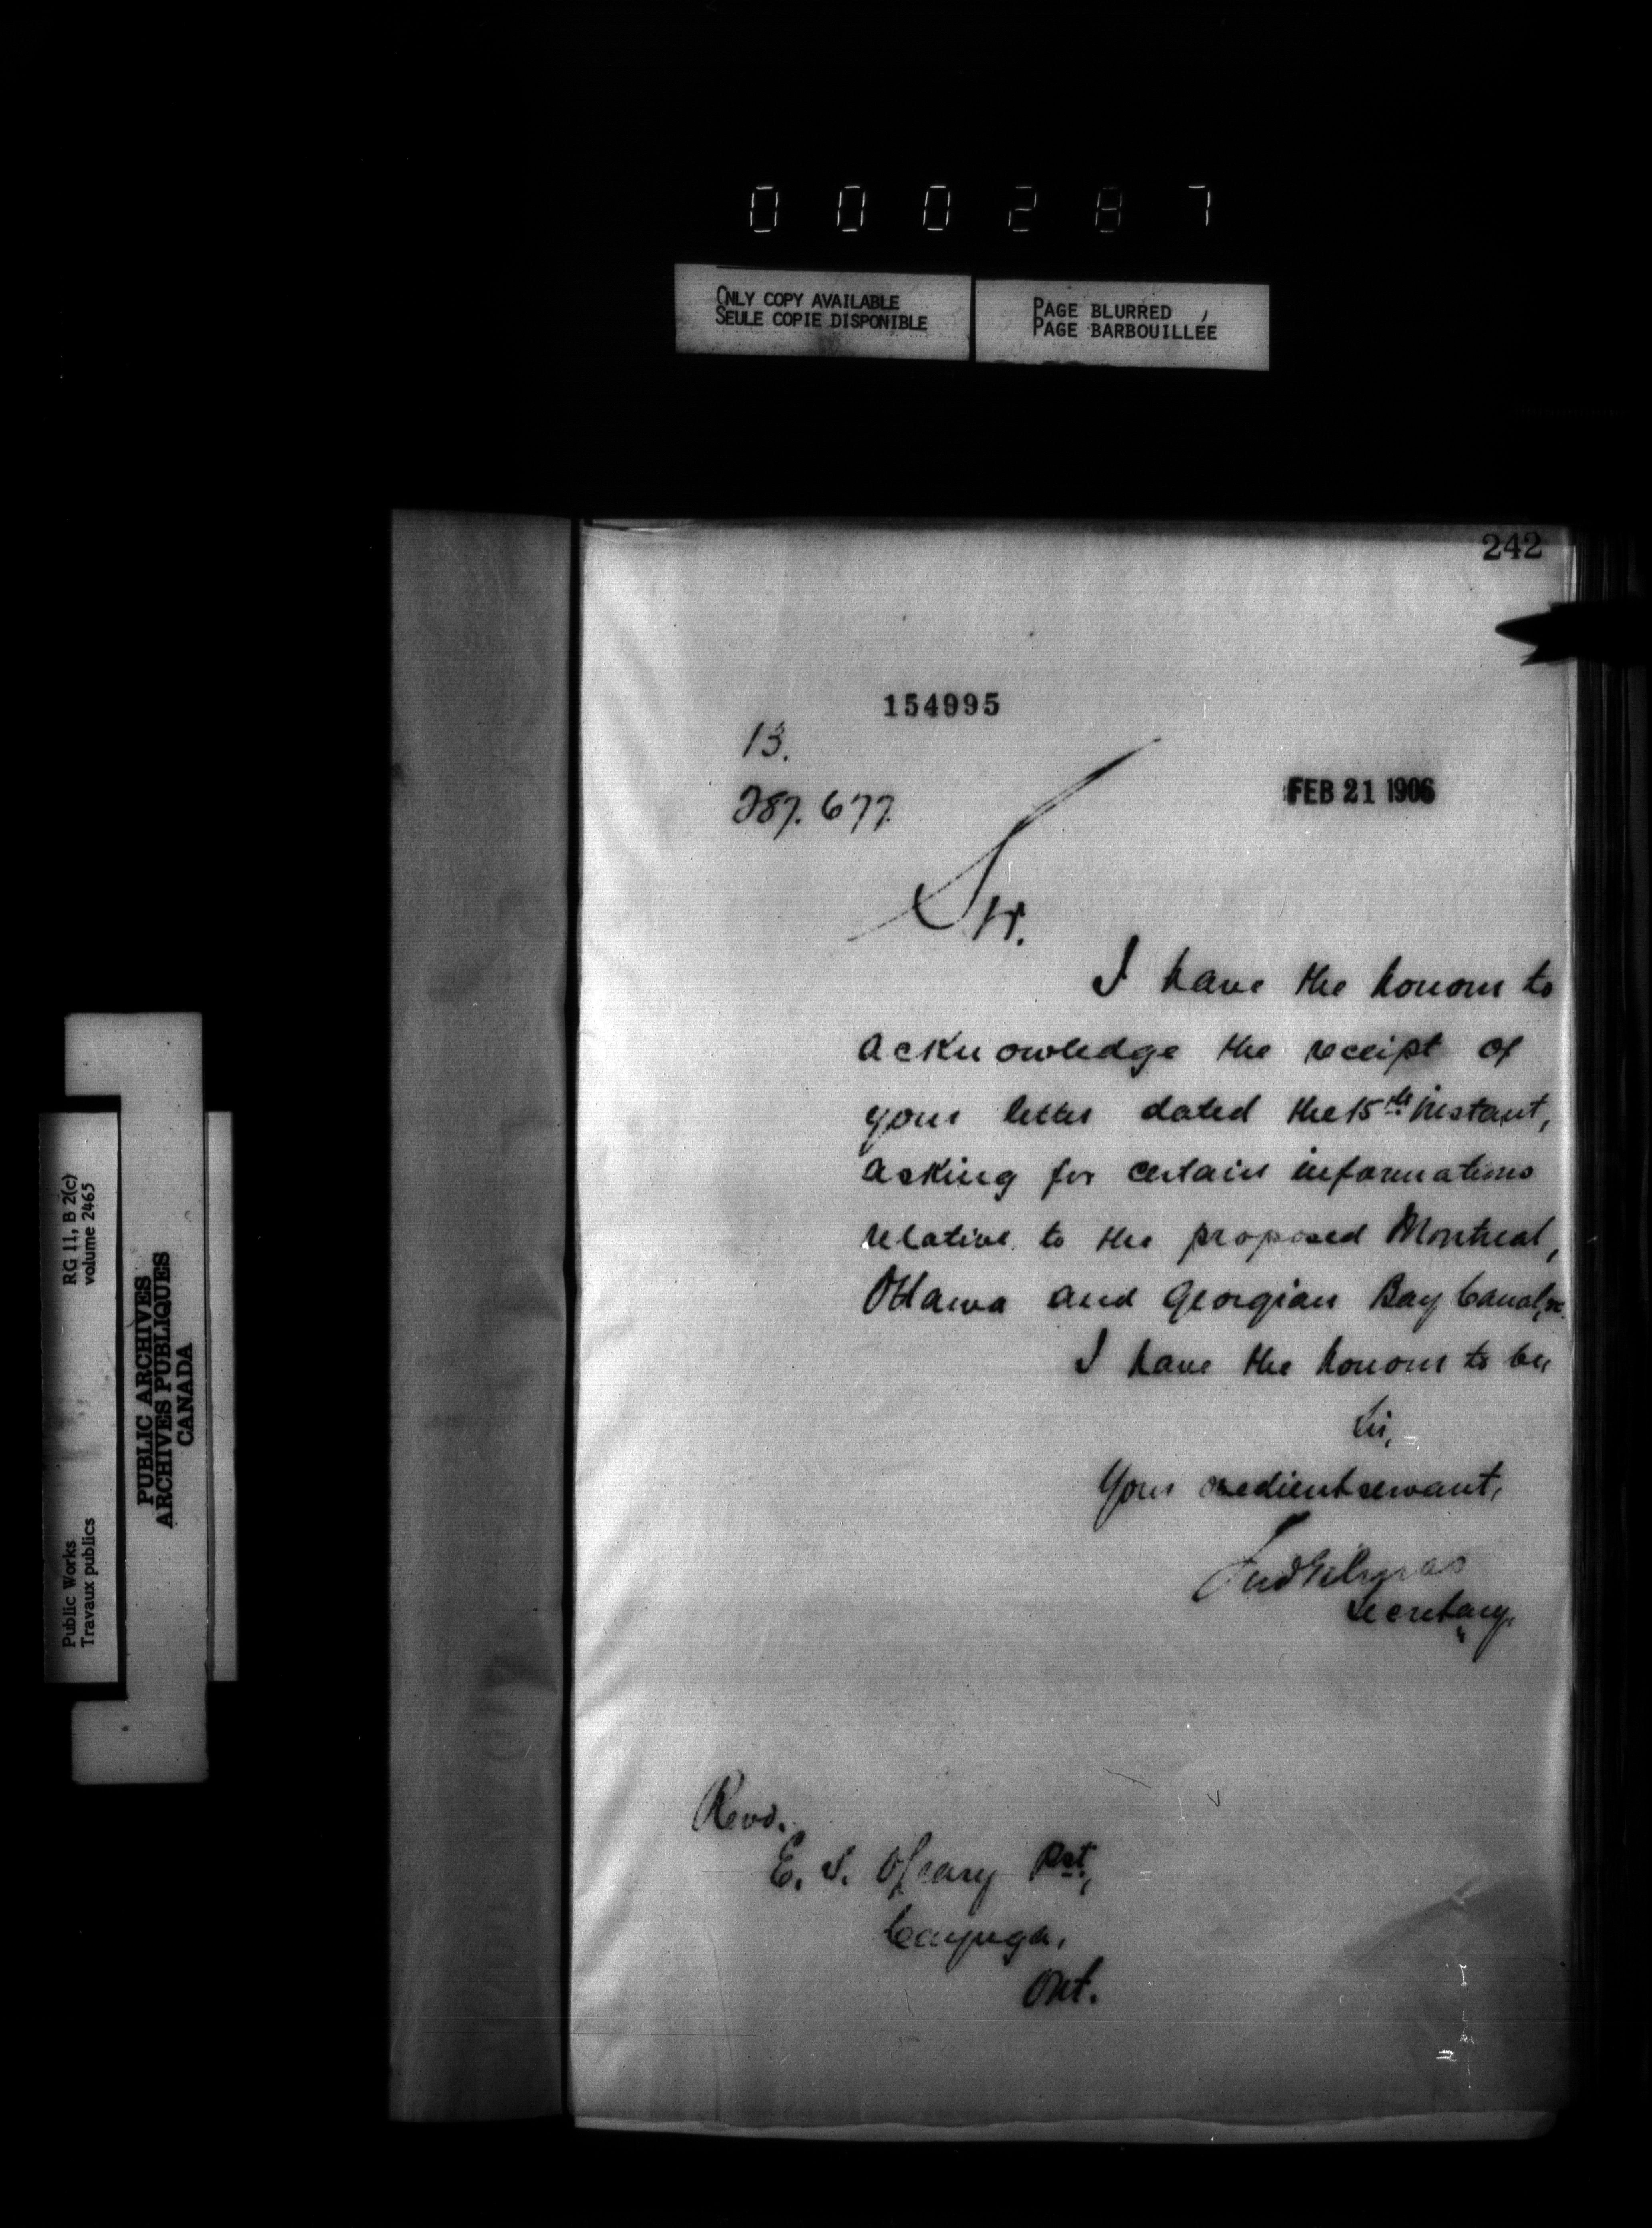 000287
ONLY COPY AVAILABLE
SEULE COPIE DISPONIBLE
PAGE BLURRED
PAGE BARBOUILLÉE
242
154995
13.
287.677.
FEB 21 1906
Sir.
I have the honour to
acknowledge the receipt of
your letter dated the 15th instant,
asking for certain informations
relative to the proposed Montreal,
Ottawa and Georgian Bay Canal,
I have the honour to be,
Sir,
Your obedient servant,
Fred Gélinas
Secretary.
Revd.
E. S. O'Leary Pst.,
Cayuga,
Ont.
RG 11, B 2(c)
volume 2465
Public Works
Travaux publics
PUBLIC ARCHIVES
ARCHIVES PUBLIQUES
CANADA